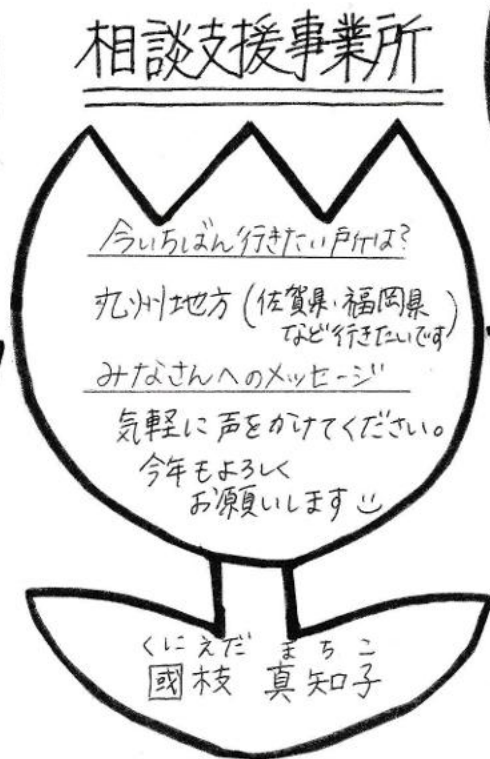 相談支援事業所
今いちばん行きたい所は?
九州地方(佐賀県・福岡県
など行きたいです)
みなさんへのメッセージ
気軽に声をかけてください。
今年もよろしく
お願いします
くにえだ まちこ
國枝 真知子